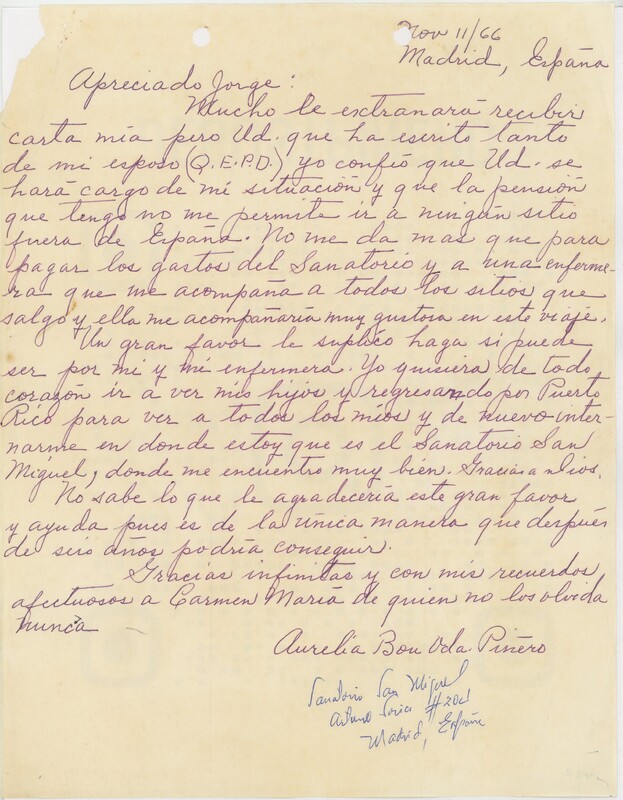 Nov 11/66
Madrid, España
Apreciado Jorge:
Mucho le extranará recibir
carta mia pero Ud. que ha escrito tanto
de mi esposo (Q.E.P.D.) yo confió que Ud. se
hará cargo de mi situación y que la pensión
que tengo no me permite ir a ningún sitio
fuera de España. No me da mas que para
pagar los gastos del Sanatorio y a una enferme-
ra que me acompaña a todos los sitios que
salgo y ella me acompañaría muy gustosa en este viaje.
Un gran favor le suplico haga si puede
ser por mi y mi enfermera. Yo quisiera de todo
corazón ir a ver mis hijos y regresando por Puerto
Rico para ver a todos los mios y de nuevo inter-
narme en donde estoy que es el Sanatorio San
Miguel, donde me encuentro muy bien. Gracias a Dios.
No sabe lo que le agradecería este gran favor
y ayuda pues es de la única manera que después
de seis años podría conseguir.
Gracias infinitas y con mis recuerdos
afectuosos a Carmen María de quien no los olvida
nunca
Aurelia Bou Vda. Piñero
Sanatorio San Miguel
Arturo Soria #204
Madrid, España